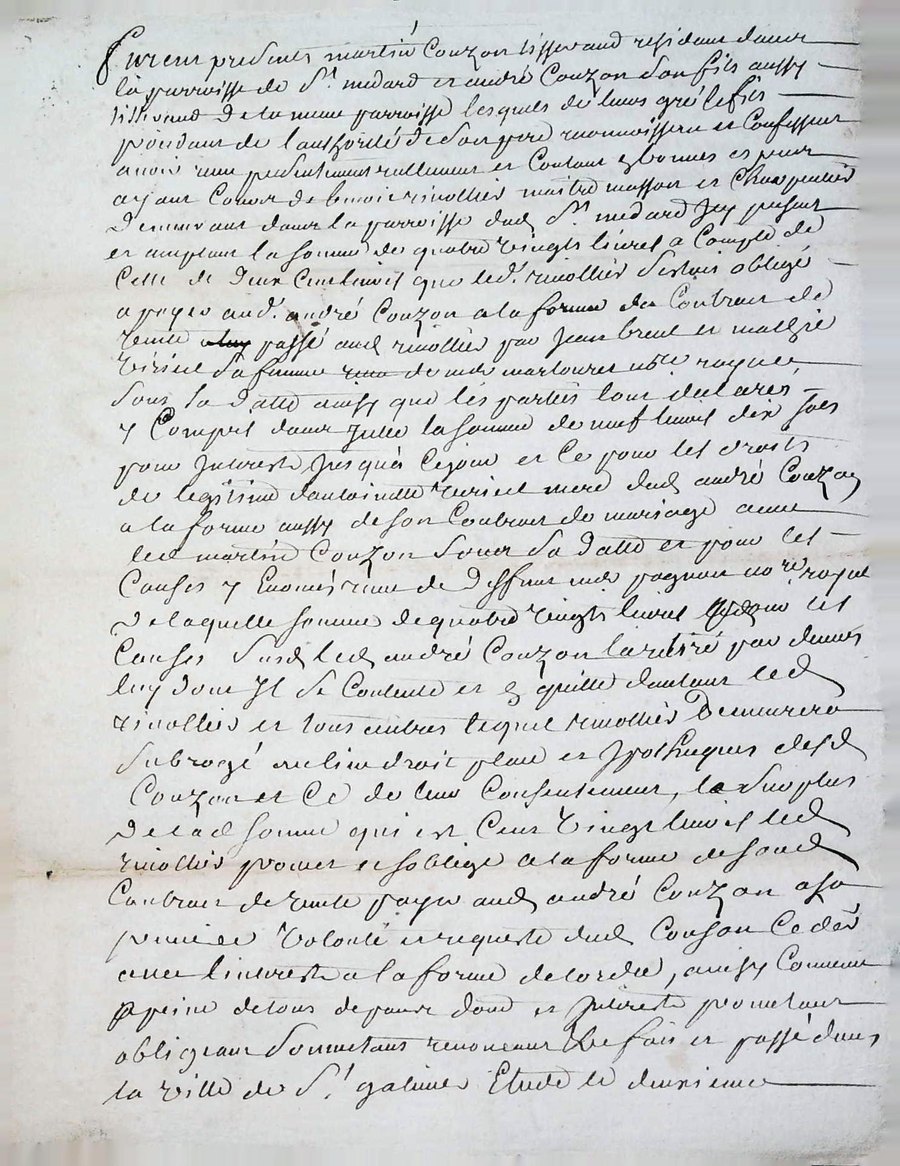 Furent presents martin Couzon tisserand residant dans
la parroisse de St. medard et andré Couzon son fils aussy
tisserand de la meme parroisse lesquels de leurs gré le fils
procedant de l'authorité de son pere reconnoissent et Confessent
avoir reçu presentement reellement et Contant
de benoit rivollier maitre masson et Charpentier
demeurant dans la parroisse dud. St. medard Icy present
et acceptant la somme de quatre vingts livres a Compte de
Celle de deux Cent livres que led. rivollier s'estoit obligé
a payer aud. andré Couzon a la forme du Contrat de
vente passé aud rivollier par Jean et
sa femme de me no.re royal
sous sa datte ainsy que les parties l'ont declarés
y Compris dans Icelle la somme de neuf livres dix sols
pour Interests Jusqu'a Cejour et Ce pour les droits
de legitime d'antoinette mere dud andré Couzon
a la forme aussy de son Contrat de mariage avec
led martin Couzon sous sa datte et pour les
Causes y Enoncés reçu de deffunt me pagnon no.re royal
de laquelle somme de quatre vingts livres les
Causes susd led andré Couzon l'a retiré par devers
luy dont Il se Contente et En quitte d'autant led
rivollier et tous autres lequel rivollier Demeurera
subrogé au lieu droit place et Ipotheques desd
Couzon et Ce de leur Consentement, le surplus
de lad somme qui est Cent vingt livres led
rivollier promet et s'oblige a la forme de sond
Contrat de vente payer aud andré Couzon a sa
premiere volonté et requeste dud Couzon
avec l'interests a la forme de l'ordre, ainsy Convenu
a peine de tous depens dom et Interests promettant
obligeant soumettant renonceant &c fait et passé dans
la ville de St. galmier Etude le deuxieme